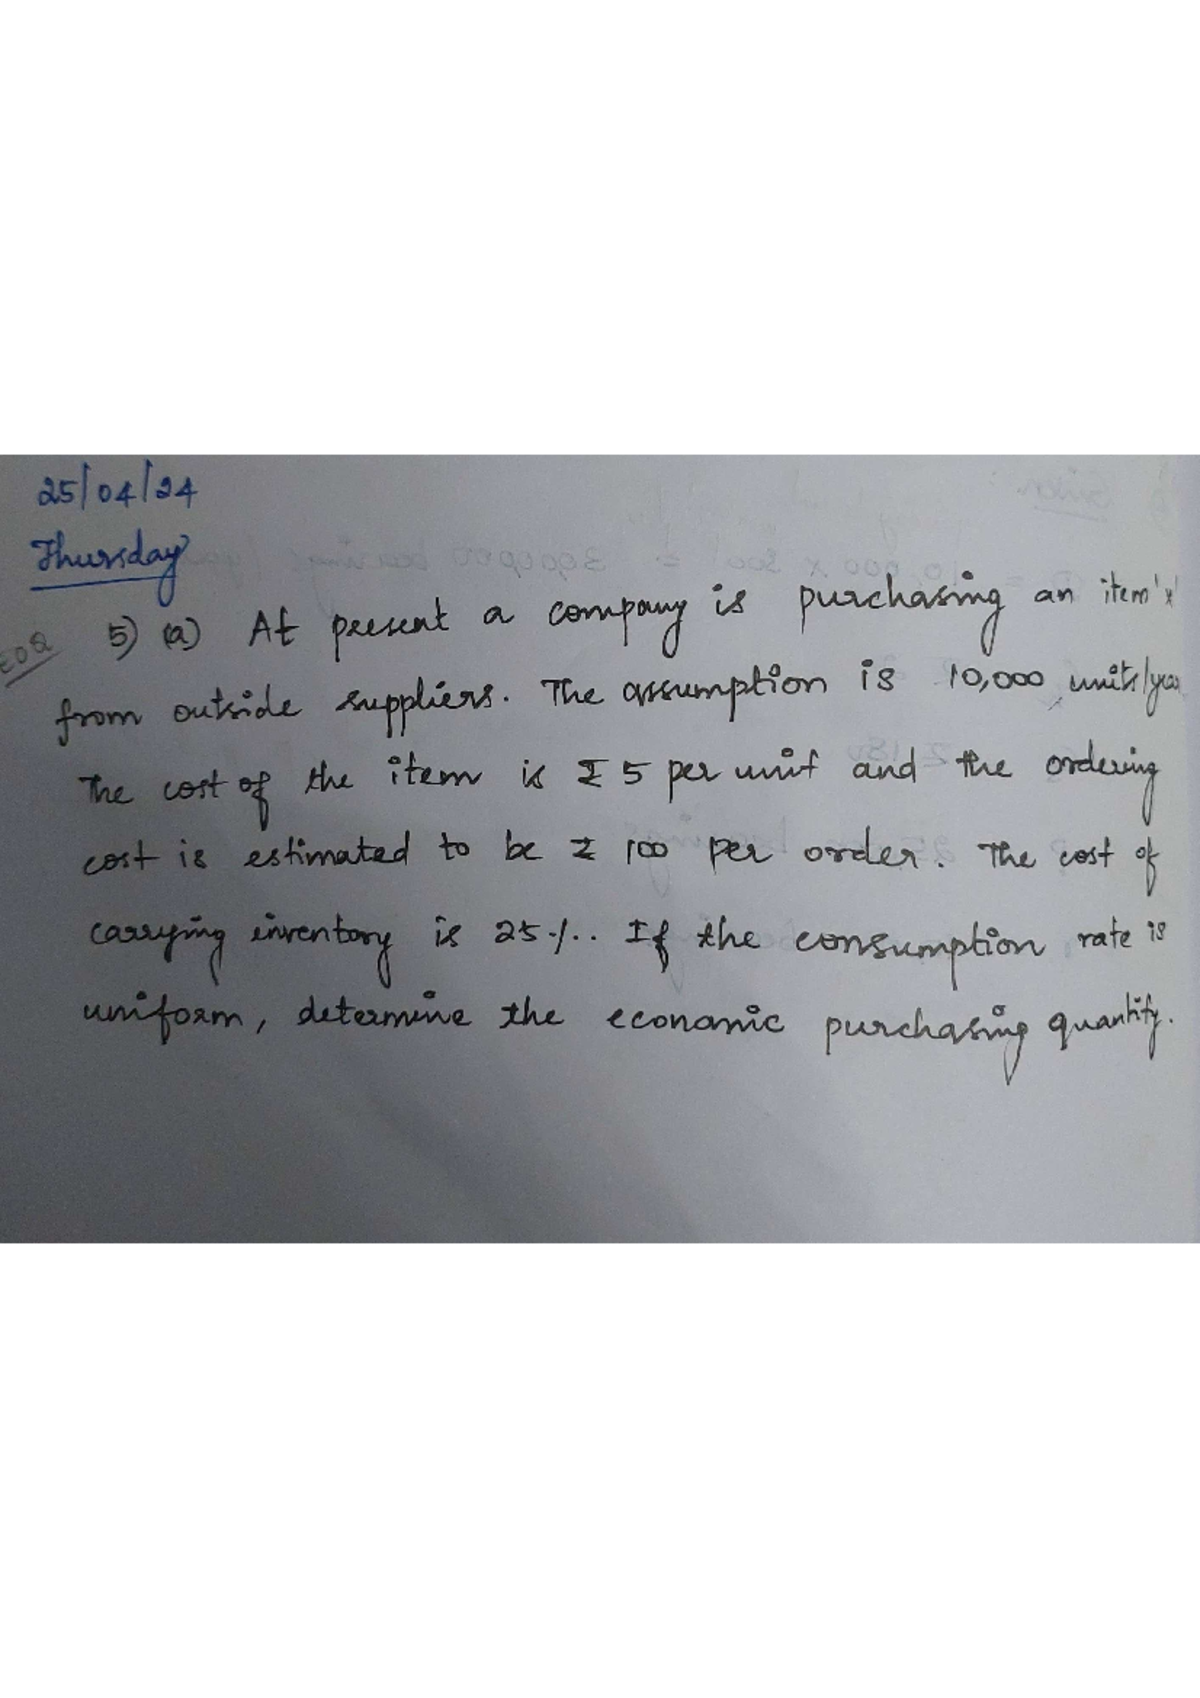 25/04/24
Thursday
EOQ 5) (a) At present a company is purchasing an item 'x'
from outside suppliers. The assumption is 10,000 units/year
The cost of the item is ₹ 5 per unit and the ordering
cost is estimated to be ₹ 100 per order. The cost of
carrying inventory is 25%. If the consumption rate is
uniform, determine the economic purchasing quantity.